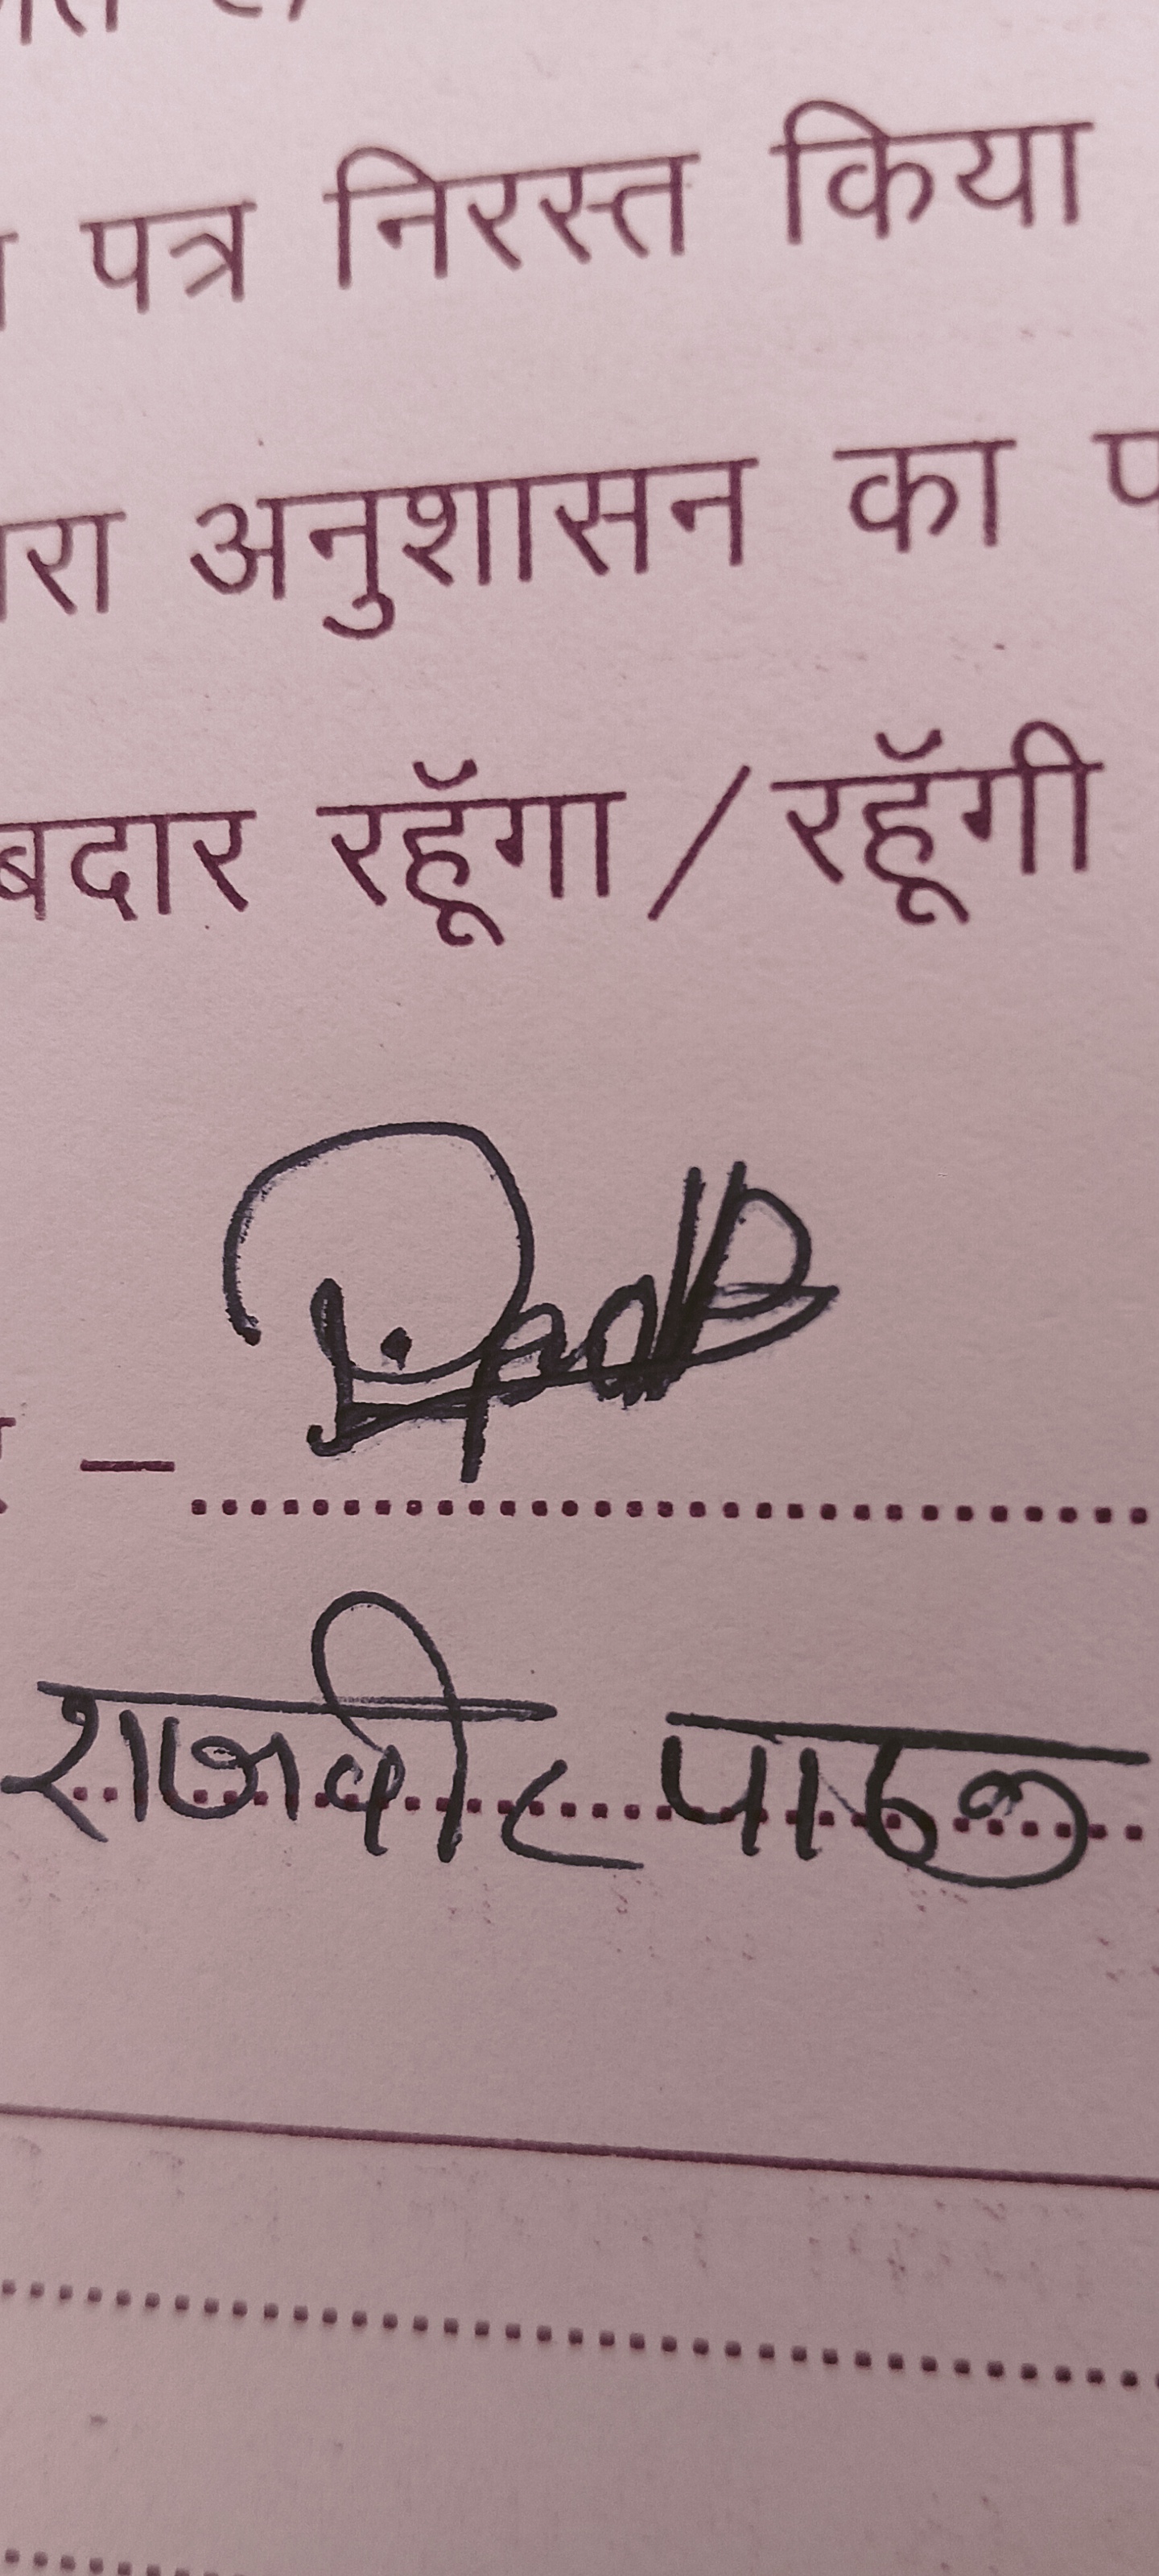 पत्र निरस्त किया
अनुशासन का
बदार रहूँगा / रहूँगी
–
राजवीर